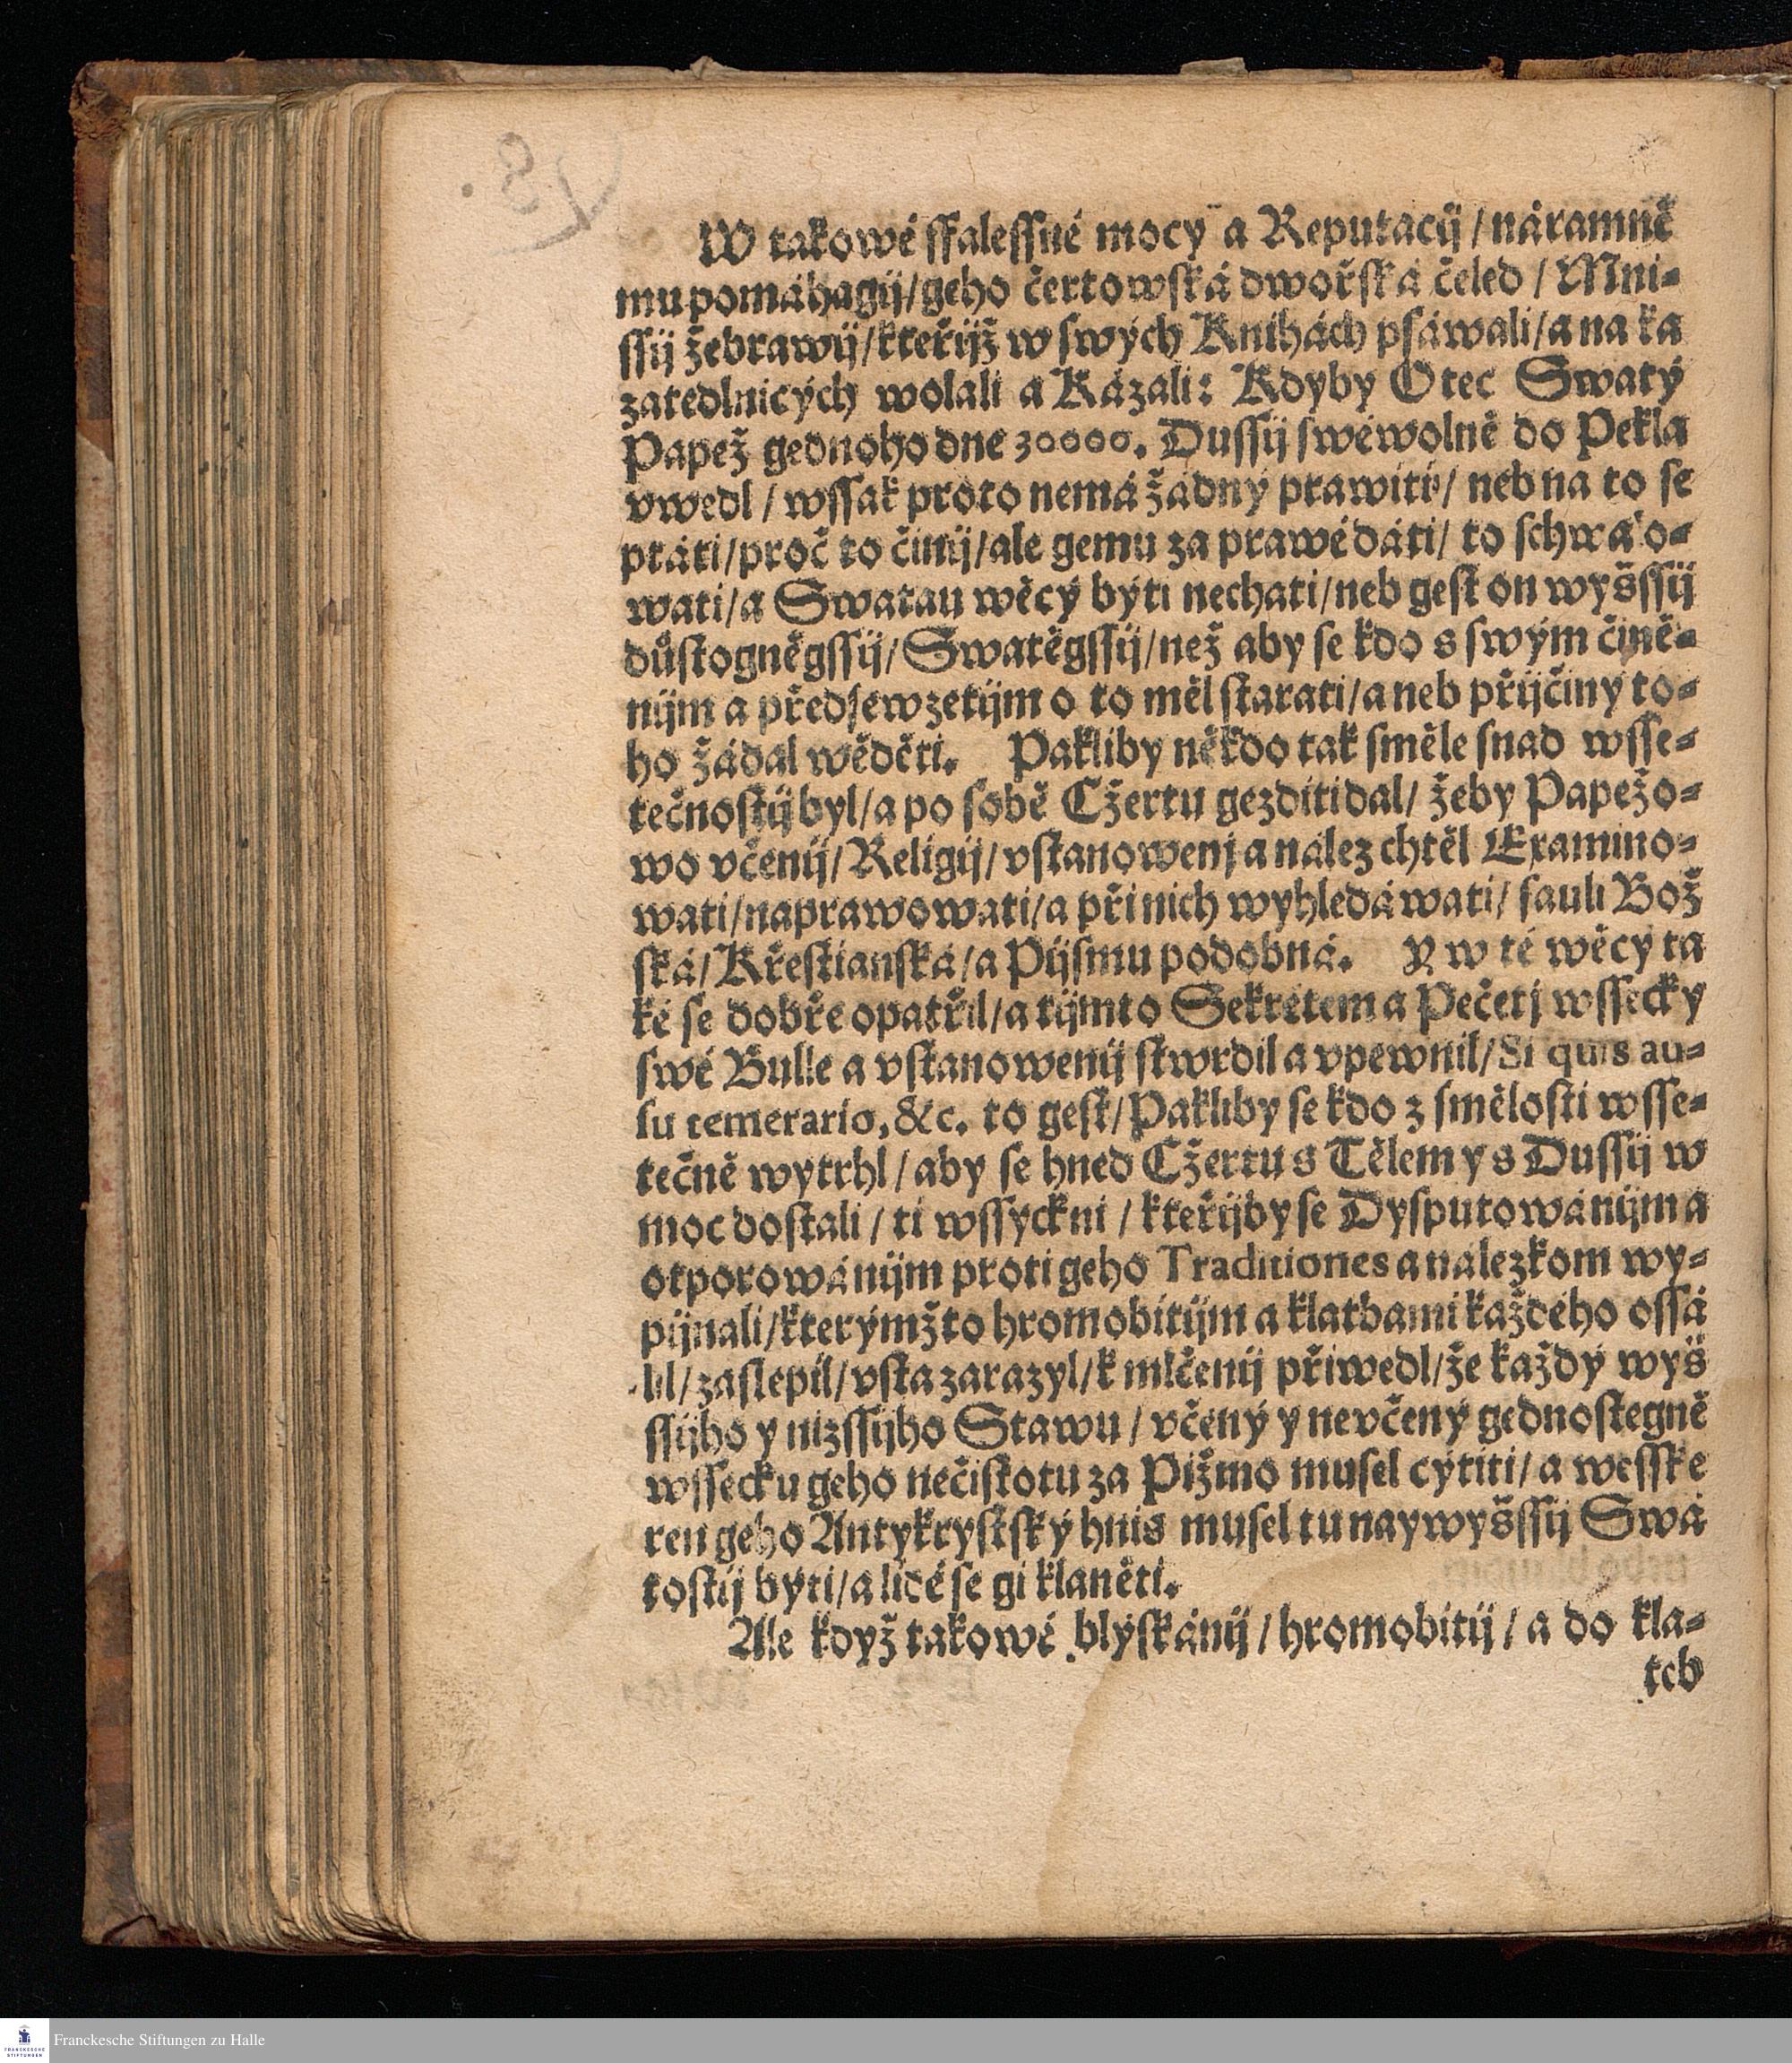 W takowé ffalessné mocy a Reputacý / náramně
mu pomáhagij / geho čertowská dwořská čeled / Mni-
ssij žebrawij / kteřijž w swých Knihách psáwali / a na ka
zatedlnicých wolali a Kázali: Kdyby Otec Swatý
Papež gednoho dne 30000. Dussij swéwolně do Pekla
vwedl / wssak proto nemá žádný prawiti / neb na to se
ptáti / proč to činij / ale gemu za prawé dáti / to schwa o-
wati / a Swatau wěcý býti nechati / neb gest on wyšssij
důstogněgssij / Swatěgssij / než aby se kdo s swým čině-
nijm a předsewzetijm o to měl starati / a neb přijčiny to-
ho žádal wěděti. Pakliby někdo tak směle snad wsse-
tečnostij byl / a po sobě Cžertu gezditi dal / žeby Papežo-
wo včenij / Religij / vstanowenj a nález chtěl Examino-
wati / naprawowati / a při nich wyhledáwati / sauli Bož
ská / Křestianská / a Pijsmu podobná. Y w té wěcy ta
ké se dobře opatřil / a tijmto Sekretem a Pečetj wssecky
swé Bulle a vstanowenij stwrdil a vpewnil / Si quis au-
su temerario, &c. to gest / Pakliby se kdo z smělosti wsse-
tečně wytrhl / aby se hned Cžertu s Tělem y s Dussij w
moc dostali / ti wssyckni / kteřijby se Dysputowánijm a
otporowánijm proti geho Traditiones a nálezkom wy-
pijnali / kterýmžto hromobitijm a klatbami každého ossá
lil / zaslepil / vsta zarazyl / k mlčenij přiwedl / že každý wyš
ssijho y nizssijho Stawu / včený y nevčený gednostegně
wssecku geho nečistotu za Pižmo musel cýtiti / a wesske
ren geho Antykrystský hnis musel tu naywyšssij Swá
tostij býti / a lidé se gi klaněti.
Ale když takowé blýskánij / hromobitij / a do kla-
teb
Franckesche Stiftungen zu Halle
FRANCKESCHE
STIFTUNGEN